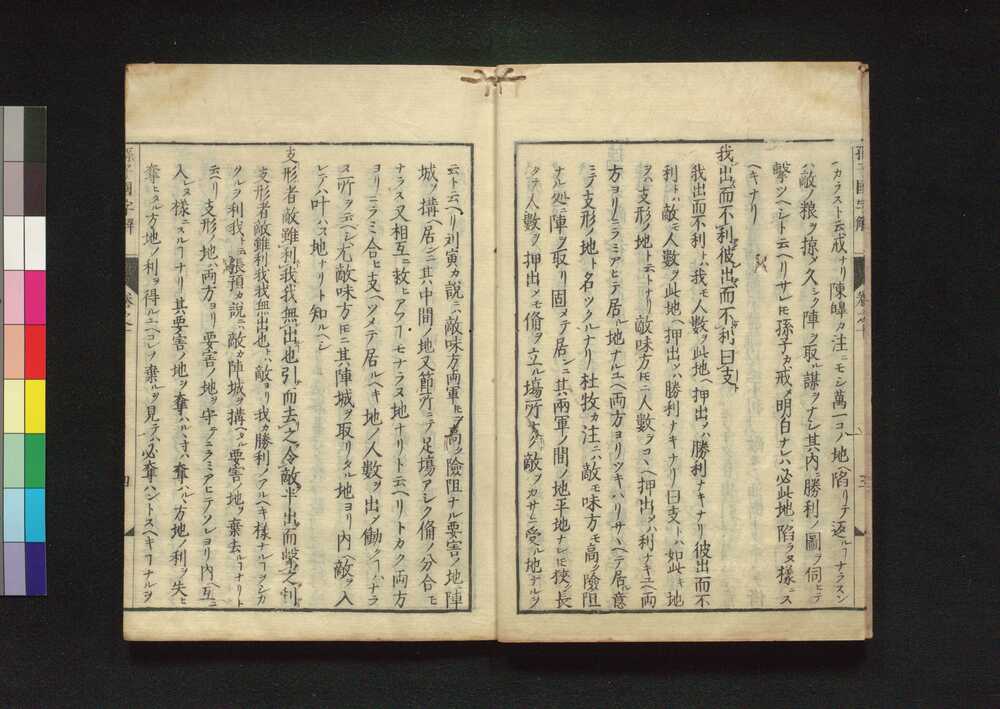 ーカラスト云戒ナリ陳皥カ注ニモシ萬一コノ地ヘ陷リテ返ルヿナラスン
ハ敵ノ粮ヲ掠メ久シク陣ヲ取ル謀ヲナシ其内ニ勝利ノ圖ヲ伺ヒテ
撃ツヘシト云ヘリサレ𪜈孫子カ戒メ明白ナレハ必此地ヘ陷ラヌ様ニス
ヘキナリ
我出而不利彼出而不利曰支
我出而不利トハ我モ人數ヲ此地ヘ押出シテハ勝利ナキナリ彼出而不
利トハ敵モ人數ヲ此地ヘ押出シテハ勝利ナキナリ曰支トハ如此キ地
ヲハ支形ノ地ト云トナリ敵味方𪜈ニ人數ヲコヽヘ押出シテハ利ナキユヘ両
方ヨリニラミアヒテ居ル地ナルユヘ両方ヨリツキハリサヽヘテ居ル意
ニテ支形ノ地ト名ツクルナリ杜牧カ注ニハ敵モ味方モ高ク險阻
ナル処ニ陣ヲ取リ固メテ居テ其兩軍ノ間ノ地平地ナレ𪜈狹ク長
クテ人數ヲ押出シテモ備ヲ立ル塲所ナク敵ヲカサニ受ル地ナルヲ
云ト云ヘリ刘寅カ説ニハ敵味方両軍𪜈ニ高ク險阻ナル要害ノ地ニ陣
城ヲ搆ヘ居テ其中間ノ地又節所ニテ足塲アシク備ノ分合モ
ナラス又相互ニ救ヒアフヿモナラヌ地ナリト云ヘリトカク両方
ヨリニラミ合ヒ支ヘツメテ居ルヘキ地ノ人數ヲ出シ働クヿハナラ
ヌ所ヲ云ヘシ尤敵味方𪜈ニ其陣城ヲ取リタル地ヨリ内ヘ敵ヲ入
レテハ叶ハヌ地ナリト知ルヘシ
支形者敵雖利我我無出也引而去之令敵半出而擊之利
支形者敵雖利我我無出也トハ敵ヨリ我カ勝利ノアルヘキ様ナルヿヲシカ
クルヲ利我ト云張預カ説ニハ敵カ陣城ヲ搆ヘタル要害ノ地ヲ棄去ルヿナリト
云ヘリ支形ノ地ハ両方ヨリ要害ノ地ヲ守テニラミアヒテソレヨリ内ヘ互ニ
入レヌ様ニスルヿナリ其要害ノ地ヲ奪ハルヽ寸ハ奪ハルヽ方地ノ利ヲ失ヒ
奪ヒタル方地ノ利ヲ得ルユヘコレヲ棄ルヲ見テハ必奪ハントスヘキヿナルヲ